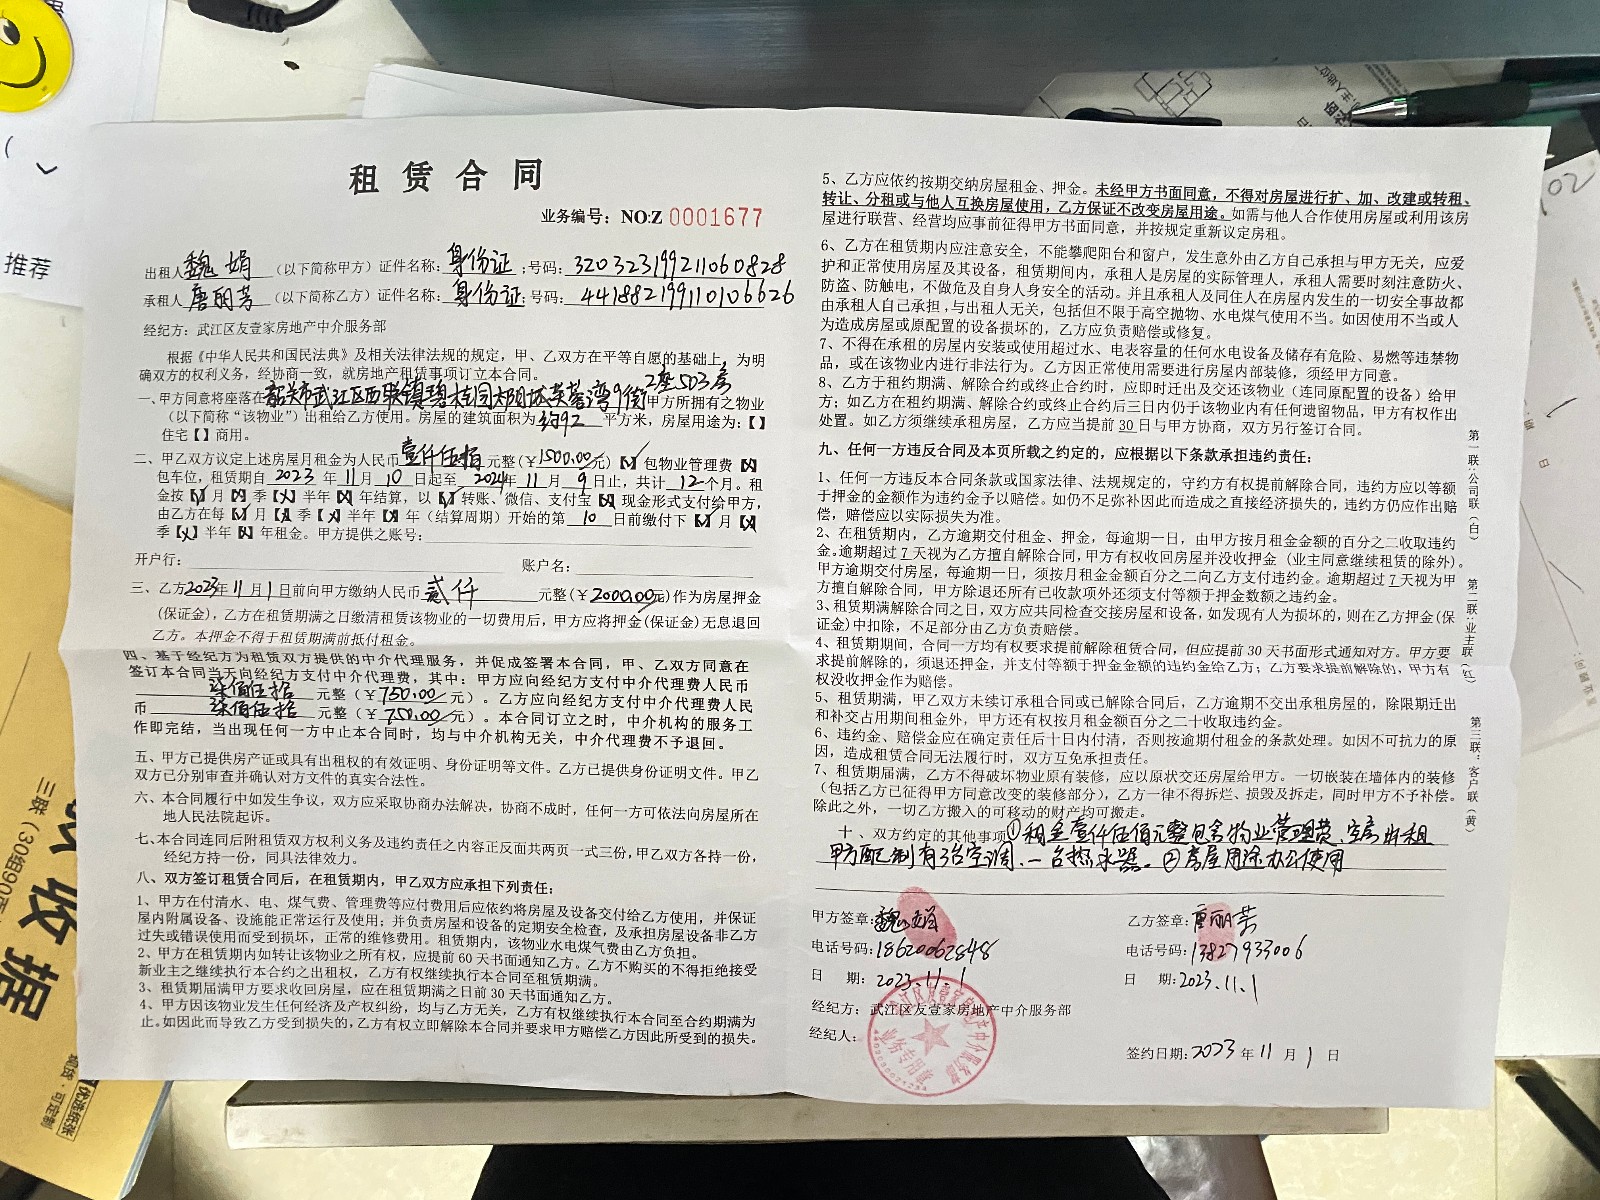 租赁合同
业务编号：NO:Z 0001677
出租人魏娟（以下简称甲方）证件名称：身份证；号码：320323199211060828
承租人唐丽芳（以下简称乙方）证件名称：身份证；号码：441882199110106626
经纪方：武江区友壹家房地产中介服务部
根据《中华人民共和国民法典》及相关法律法规的规定，甲、乙双方在平等自愿的基础上，为明
确双方的权利义务，经协商一致，就房地产租赁事项订立本合同。
一、甲方同意将座落在韶关市武江区西联镇碧桂园太阳城芙蓉湾9街2座503房甲方所拥有之物业
（以下简称“该物业”）出租给乙方使用。房屋的建筑面积为约92平方米，房屋用途为：【】
住宅【】商用。
二、甲乙双方议定上述房屋月租金为人民币壹仟伍佰元整（￥1500.00元）【✓】包物业管理费【X】
包车位，租赁期自2023年11月10日起至2024年11月9日止，共计12个月。租
金按【✓】月【X】季【X】半年【X】年结算，以【✓】转账、微信、支付宝【X】现金形式支付给甲方，
由乙方在每【✓】月【X】季【X】半年【X】年（结算周期）开始的第10日前缴付下【✓】月【X】
季【X】半年【X】年租金。甲方提供之账号：
开户行： 账户名：
三、乙方2023年11月1日前向甲方缴纳人民币贰仟元整（￥2000.00元）作为房屋押金
（保证金），乙方在租赁期满之日缴清租赁该物业的一切费用后，甲方应将押金（保证金）无息退回
乙方。本押金不得于租赁期满前抵付租金。
四、基于经纪方为租赁双方提供的中介代理服务，并促成签署本合同，甲、乙双方同意在
签订本合同当天向经纪方支付中介代理费，其中：甲方应向经纪方支付中介代理费人民币
柒佰伍拾元整（￥750.00元）。乙方应向经纪方支付中介代理费人民
币柒佰伍拾元整（￥750.00元）。本合同订立之时，中介机构的服务工
作即完结，当出现任何一方中止本合同时，均与中介机构无关，中介代理费不予退回。
五、甲方已提供房产证或具有出租权的有效证明、身份证明等文件。乙方已提供身份证明文件。甲乙
双方已分别审查并确认对方文件的真实合法性。
六、本合同履行中如发生争议，双方应采取协商办法解决，协商不成时，任何一方可依法向房屋所在
地人民法院起诉。
七、本合同连同后附租赁双方权利义务及违约责任之内容正反面共两页一式三份，甲乙双方各持一份，
经纪方持一份，同具法律效力。
八、双方签订租赁合同后，在租赁期内，甲乙双方应承担下列责任：
1、甲方在付清水、电、煤气费、管理费等应付费用后应依约将房屋及设备交付给乙方使用，并保证
屋内附属设备、设施能正常运行及使用；并负责房屋和设备的定期安全检查，及承担房屋设备非乙方
过失或错误使用而受到损坏，正常的维修费用。租赁期内，该物业水电煤气费由乙方负担。
2、甲方在租赁期内如转让该物业之所有权，应提前60天书面通知乙方。乙方不购买的不得拒绝接受
新业主之继续执行本合约之出租权，乙方有权继续执行本合同至租赁期满。
3、租赁期届满甲方要求收回房屋，应在租赁期满之日前30天书面通知乙方。
4、甲方因该物业发生任何经济及产权纠纷，均与乙方无关，乙方有权继续执行本合同至合约期满为
止。如因此而导致乙方受到损失的，乙方有权立即解除本合同并要求甲方赔偿乙方因此所受到的损失。
5、乙方应依约按期交纳房屋租金、押金。未经甲方书面同意，不得对房屋进行扩、加、改建或转租、
转让、分租或与他人互换房屋使用，乙方保证不改变房屋用途。如需与他人合作使用房屋或利用该房
屋进行联营、经营均应事前征得甲方书面同意，并按规定重新议定房租。
6、乙方在租赁期内应注意安全，不能攀爬阳台和窗户，发生意外由乙方自己承担与甲方无关，应爱
护和正常使用房屋及其设备，租赁期间内，承租人是房屋的实际管理人，承租人需要时刻注意防火、
防盗、防触电，不做危及自身人身安全的活动。并且承租人及同住人在房屋内发生的一切安全事故都
由承租人自己承担，与出租人无关，包括但不限于高空抛物、水电煤气使用不当。如因使用不当或人
为造成房屋或原配置的设备损坏的，乙方应负责赔偿或修复。
7、不得在承租的房屋内安装或使用超过水、电表容量的任何水电设备及储存有危险、易燃等违禁物
品，或在该物业内进行非法行为。乙方因正常使用需要进行房屋内部装修，须经甲方同意。
8、乙方于租约期满、解除合约或终止合约时，应即时迁出及交还该物业（连同原配置的设备）给甲
方；如乙方在租约期满、解除合约或终止合约后三日内仍于该物业内有任何遗留物品，甲方有权作出
处置。如乙方须继续承租房屋，乙方应当提前30日与甲方协商，双方另行签订合同。
九、任何一方违反合同及本页所载之约定的，应根据以下条款承担违约责任：
1、任何一方违反本合同条款或国家法律、法规规定的，守约方有权提前解除合同，违约方应以等额
于押金的金额作为违约金予以赔偿。如仍不足弥补因此而造成之直接经济损失的，违约方仍应作出赔
偿，赔偿应以实际损失为准。
2、在租赁期内，乙方逾期交付租金、押金，每逾期一日，由甲方按月租金金额的百分之二收取违约
金。逾期超过7天视为乙方擅自解除合同，甲方有权收回房屋并没收押金（业主同意继续租赁的除外）。
甲方逾期交付房屋，每逾期一日，须按月租金金额百分之二向乙方支付违约金。逾期超过7天视为甲
方擅自解除合同，甲方除退还所有已收款项外还须支付等额于押金数额之违约金。
3、租赁期满解除合同之日，双方应共同检查交接房屋和设备，如发现有人为损坏的，则在乙方押金（保
证金）中扣除，不足部分由乙方负责赔偿。
4、租赁期期间，合同一方均有权要求提前解除租赁合同，但应提前30天书面形式通知对方。甲方要
求提前解除的，须退还押金，并支付等额于押金金额的违约金给乙方；乙方要求提前解除的，甲方有
权没收押金作为赔偿。
5、租赁期满，甲乙双方未续订承租合同或已解除合同后，乙方逾期不交出承租房屋的，除限期迁出
和补交占用期间租金外，甲方还有权按月租金额百分之二十收取违约金。
6、违约金、赔偿金应在确定责任后十日内付清，否则按逾期付租金的条款处理。如因不可抗力的原
因，造成租赁合同无法履行时，双方互免承担责任。
7、租赁期届满，乙方不得破坏物业原有装修，应以原状交还房屋给甲方。一切嵌装在墙体内的装修
（包括乙方已征得甲方同意改变的装修部分），乙方一律不得拆烂、损毁及拆走，同时甲方不予补偿。
除此之外，一切乙方搬入的可移动的财产均可搬走。
十、双方约定的其他事项①租金壹仟伍佰元整包含物业管理费、空房出租
甲方配制有3台空调、一台热水器。②房屋用途办公使用
甲方签章：魏娟 乙方签章：唐丽芳
电话号码：18620062848 电话号码：13827933006
日期：2023.11.1 日期：2023.11.1
经纪方：武江区友壹家房地产中介服务部
经纪人：
签约日期：2023年11月1日
武江区友壹家房地产中介服务部
业务专用章
第一联：公司联（白）
第二联：业主联（红）
第三联：客户联（黄）
推荐
收据
三联（30组90页